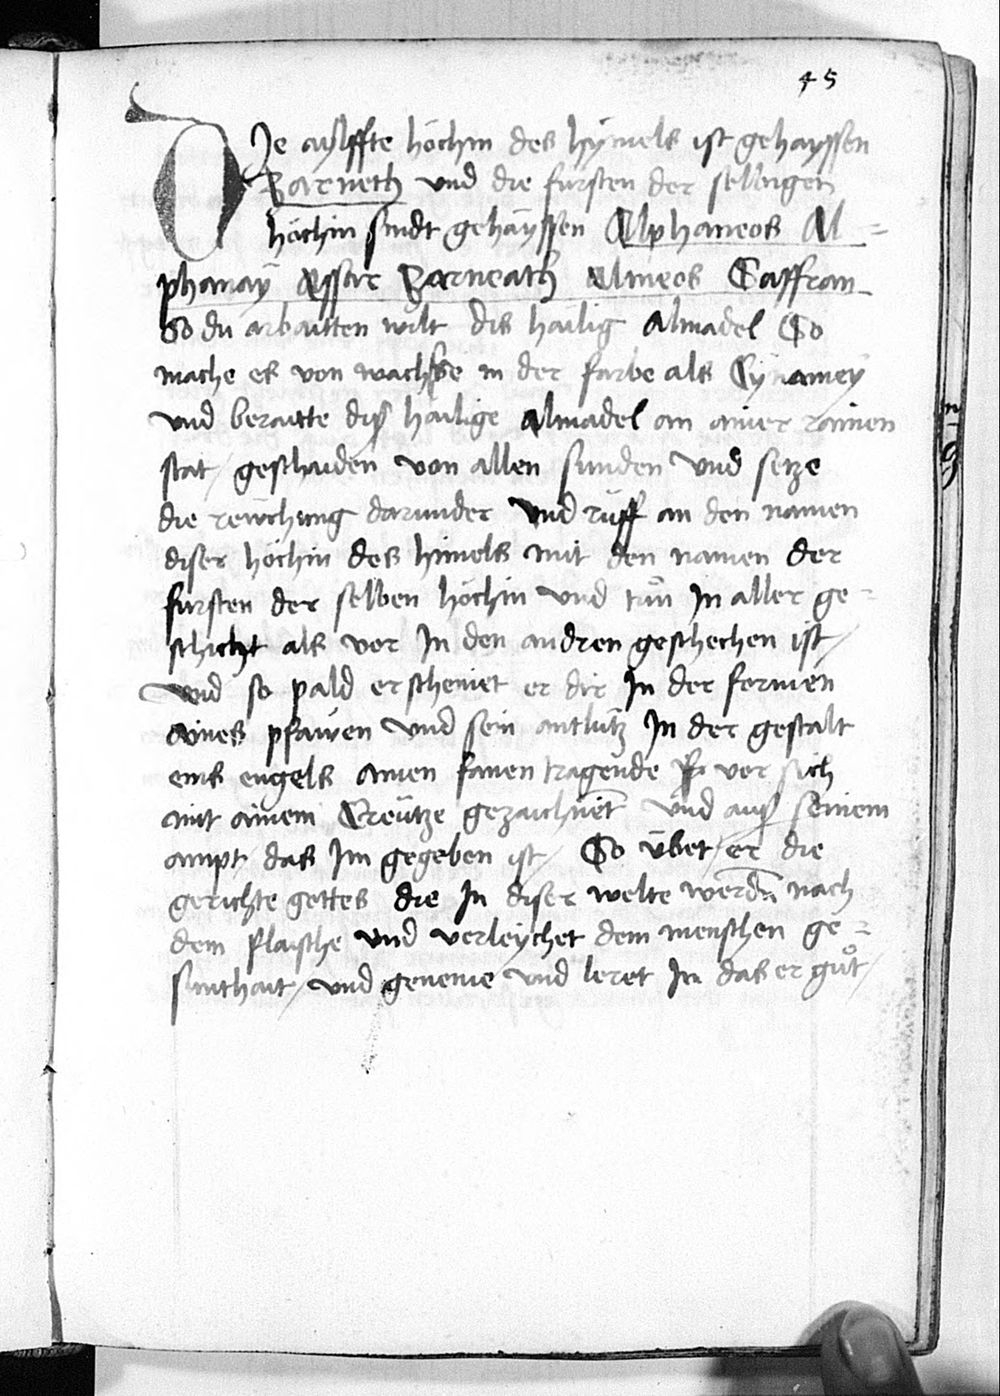 45
DJe aylffte höchin des hÿmels ist gehayssen
Barneth und die fursten der selbigen
höchin sindt gehäyssen Alphaneos Al=
phanaÿ Assar Barneath Almeos Gaffran
So du arbaitten wilt dis hailig Almadel So
mache es von wachsse in der farbe als Cynamey
und beraitte diß hailige Almadel an ainer rainen
stat / geschaiden von allen sunden Und setze
die reẅchung darunder Und rüff an den namen
diser höchin des himels mit den namen der
fursten der selben höchin und tuͦn In aller ge=
schicht als vor In den andren geschechen ist /
Und so pald erscheinet er dir In der formen
aines pfawen und sein antlütz In der gestalt
eins engels ainen fanen tragende vor sich
mit ainem Creütze gezaichnet Und auß seinem
ampt / das Im gegeben ist / So übet / er die
gerichte gottes die In diser welte werdn nach
dem flaische und verleychet dem menschen ge=
sunthait / und geneme und leret In das er guͦt /